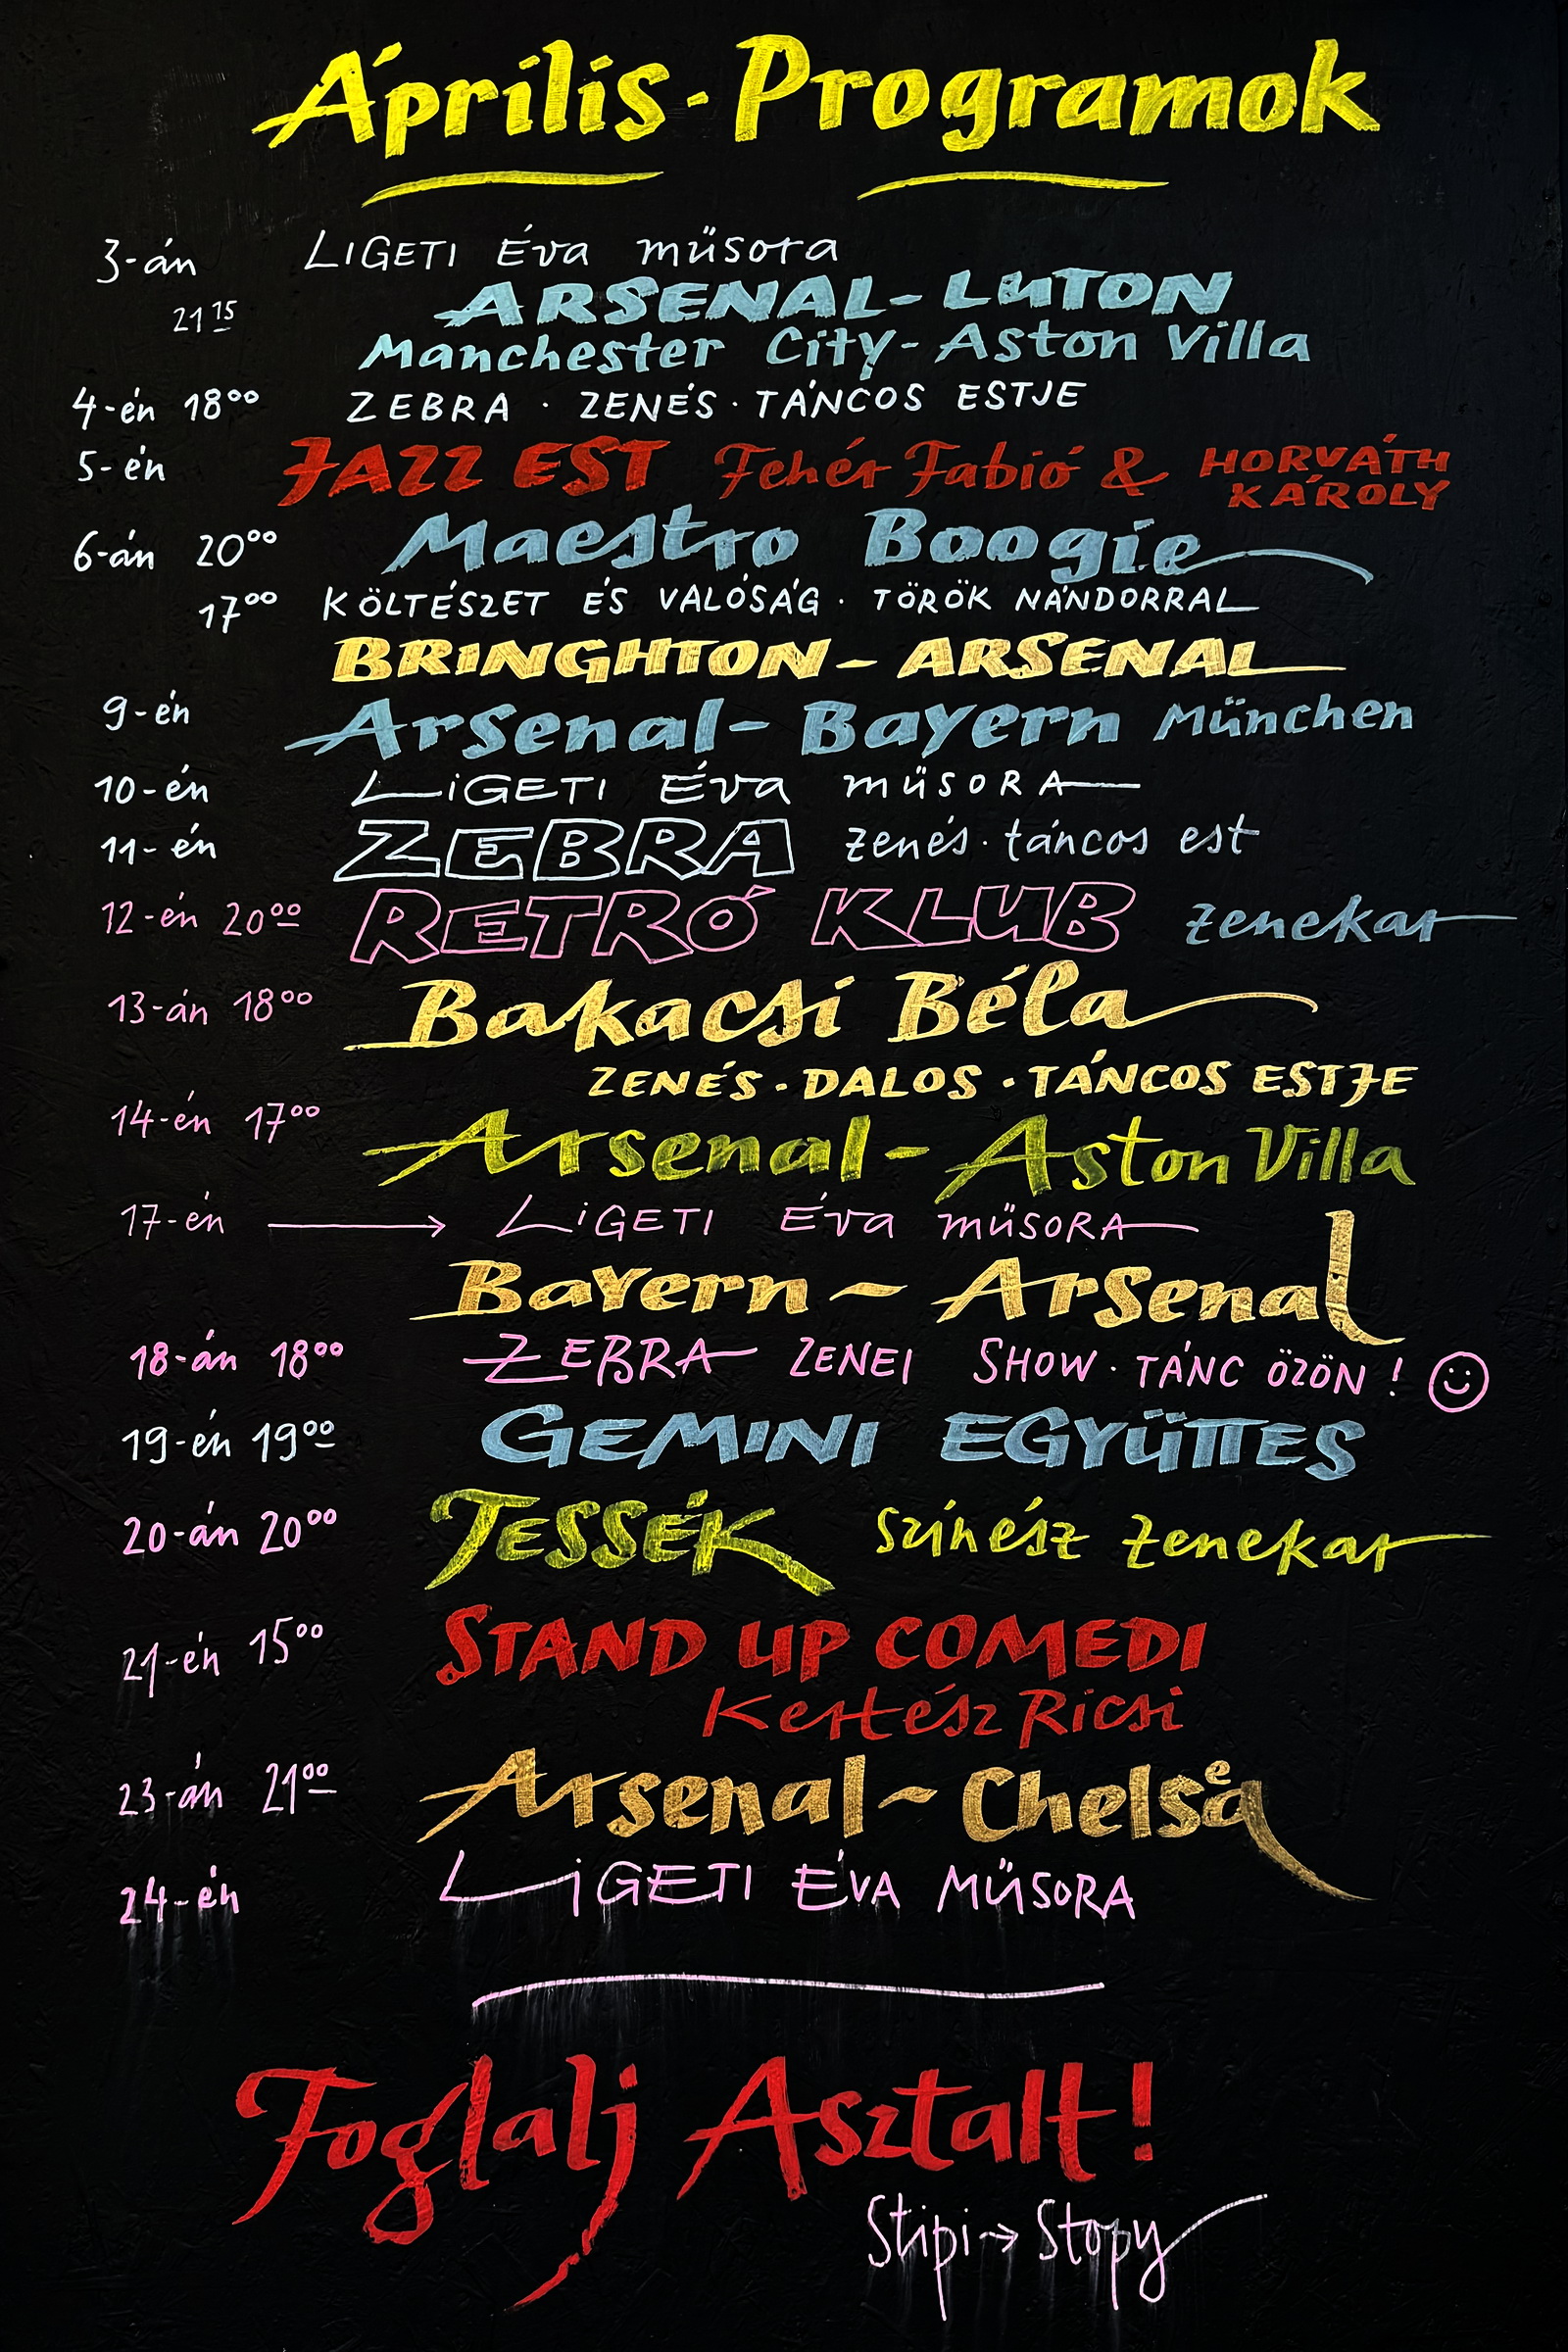 Április - Programok
3-án LIGETI Éva műsora
21 15 ARSENAL - LUTON
Manchester City - Aston Villa
4-én 18⁰⁰ ZEBRA · ZENÉS · TÁNCOS ESTJE
5-én JAZZ EST Fehér Fabió & HORVÁTH KÁROLY
6-án 20⁰⁰ Maestro Boogie
17⁰⁰ KÖLTÉSZET ÉS VALÓSÁG · TÖRÖK NÁNDORRAL
BRINGHTON - ARSENAL
9-én Arsenal - Bayern München
10-én LIGETI Éva műSORA
11-én ZEBRA zenés · táncos est
12-én 20⁰⁰ RETRÓ KLUB zenekar
13-án 18⁰⁰ Bakacsi Béla
ZENÉS · DALOS · TÁNCOS ESTJE
14-én 17⁰⁰ Arsenal - Aston Villa
17-én → LIGETI Éva műSORA
Bayern - Arsenal
18-án 18⁰⁰ ZEBRA ZENEI SHOW · TÁNC ÖZÖN ! ☺
19-én 19⁰⁰ GEMINI EGYÜTTES
20-án 20⁰⁰ TESSÉK színész zenekar
21-én 15⁰⁰ STAND UP COMEDI
Kertész Ricsi
23-án 21⁰⁰ Arsenal - Chelsea
24-én LIGETI ÉVA MŰSORA
Foglalj Asztalt!
Stipi → Stopy